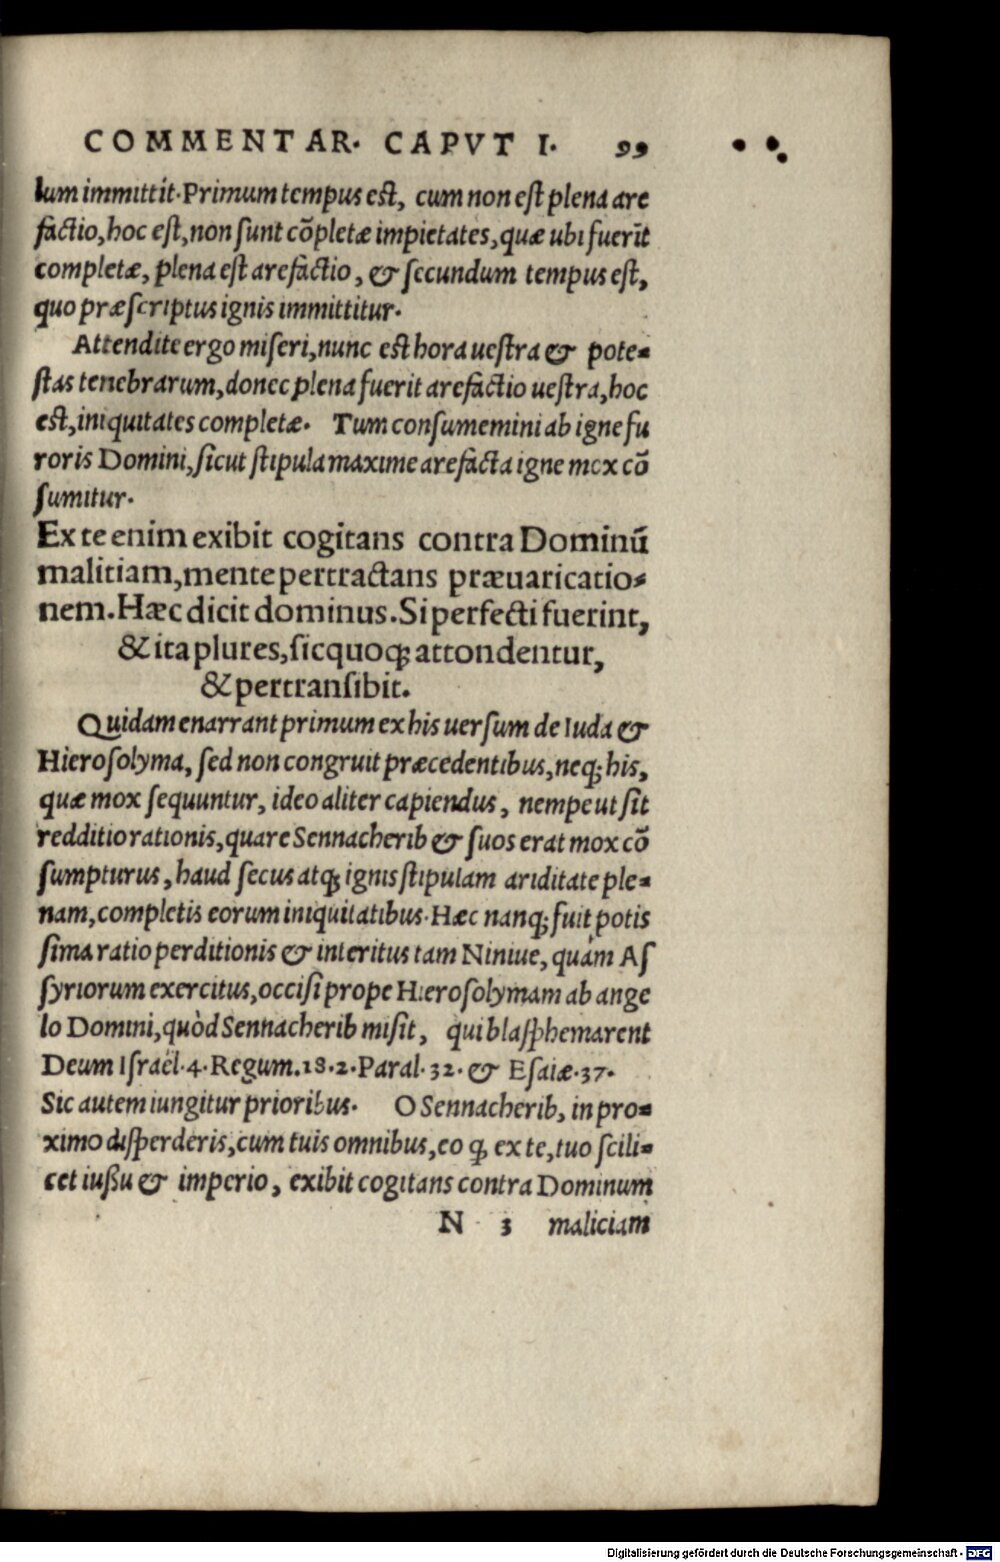 COMMENTAR. CAPVT I. 99
lum immittit. Primum tempus est, cum non est plena are
factio, hoc est, non sunt cõpletæ impietates, quæ ubi fuerĩt
completæ, plena est arefactio, & secundum tempus est,
quo præscriptus ignis immittitur.
Attendite ergo miseri, nunc est hora uestra & pote-
stas tenebrarum, donec plena fuerit arefactio uestra, hoc
est, iniquitates completæ. Tum consumemini ab igne fu
roris Domini, sicut stipula maxime arefacta igne mox cõ
sumitur.
Ex te enim exibit cogitans contra Dominũ
malitiam, mente pertractans præuaricatio-
nem. Hæc dicit dominus. Si perfecti fuerint,
& ita plures, sic quoq; attondentur,
& pertransibit.
Quidam enarrant primum ex his uersum de Iuda &
Hierosolyma, sed non congruit præcedentibus, neq; his,
quæ mox sequuntur, ideo aliter capiendus, nempe ut sit
redditio rationis, quare Sennacherib & suos erat mox cõ
sumpturus, haud secus atq; ignis stipulam ariditate ple-
nam, completis eorum iniquitatibus. Hæc nanq; fuit potis
sima ratio perditionis & interitus tam Niniue, quàm As
syriorum exercitus, occisi prope Hierosolymam ab ange
lo Domini, quòd Sennacherib misit, qui blasphemarent
Deum Israël. 4. Regum. 18. 2. Paral. 32. & Esaiæ. 37.
Sic autem iungitur prioribus. O Sennacherib, in pro-
ximo disperderis, cum tuis omnibus, eo q; ex te, tuo scili-
cet iußu & imperio, exibit cogitans contra Dominum
N 3 maliciam
Digitalisierung gefördert durch die Deutsche Forschungsgemeinschaft - DFG